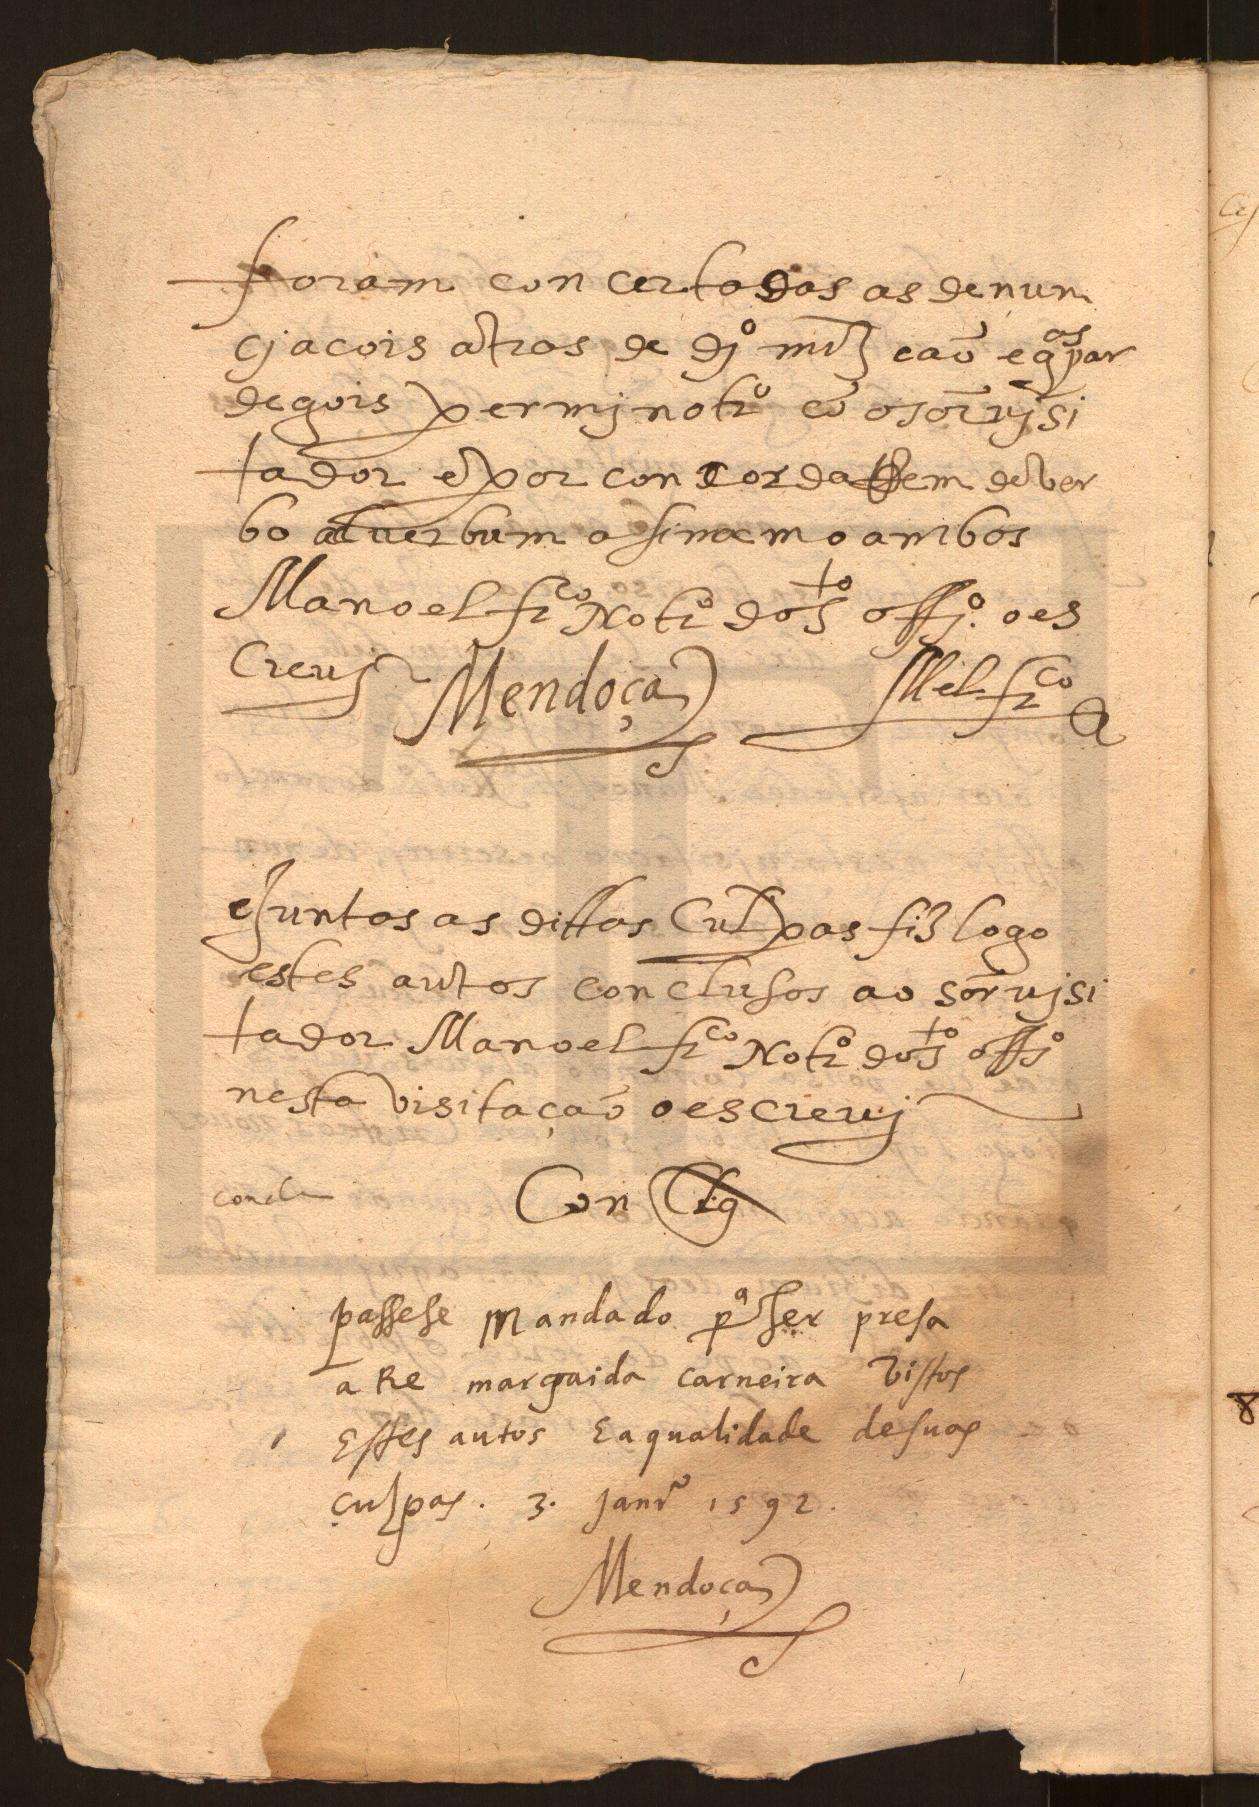 foram concertadas as denun
cjacois atras de dj.º miz caõ e gas par
degois per mj notr.º cõ o sõr vjsi
tador e por concordarem de ver
bo ad verbum asinamo ambos
Manoel fr.co Notr.º do s.to offj.º o es
crevj Mendoça Mel fr.co
E juntas as dittas Culpas fiz logo
estes autos conclusos ao sõr vjsi
tador Manoel fr.co Notr.º do s.to offj.º
nesta visitaçaõ o escrevj
concl Con Cls
passese mandado p.ª ser presa
a Re margaida carneira vistos
Estes autos E a qualidade de suas
culpas. 3. Janr.º 1592.
Mendoça